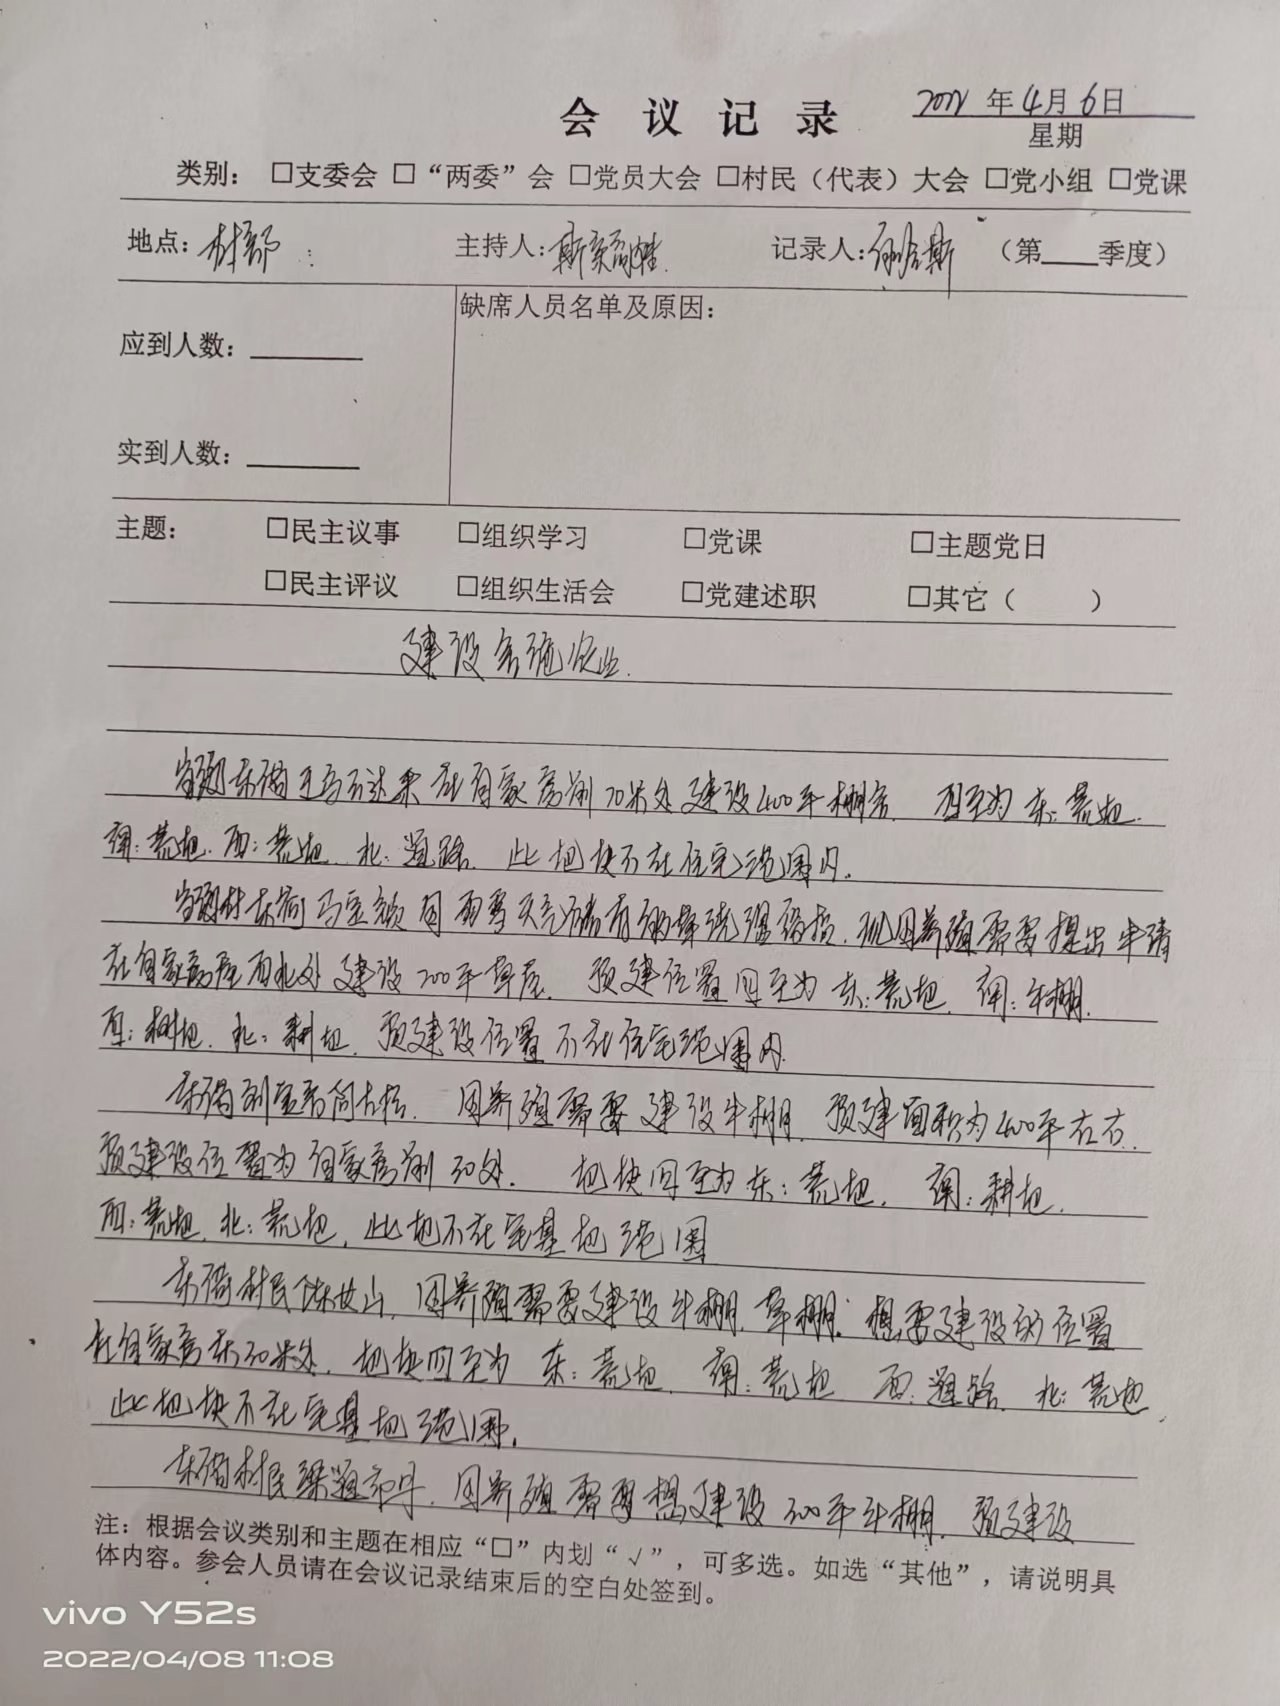 会 议 记 录
2022 年 4月 6日
星期
类别： □支委会 □“两委”会 □党员大会 □村民（代表）大会 □党小组 □党课
地点：村部 主持人： 记录人： （第 季度）
缺席人员名单及原因：
应到人数：
实到人数：
主题： □民主议事 □组织学习 □党课 □主题党日
□民主评议 □组织生活会 □党建述职 □其它（ ）
建设
在自家房前70米处建设400平棚舍. 四至为 东：荒地.
南：荒地. 西：荒地. 北：道路. 此地块不在住宅范围内.
现因养殖需要提出申请
在自家房屋西北处建设200平草库. 预建位置四至为 东：荒地. 南：牛棚.
西：树地. 北：耕地. 预建设位置不在住宅范围内.
因养殖需要建设牛棚. 预建面积为400平左右.
预建设位置为自家房前30处. 地块四至为东：荒地. 南：耕地.
西：荒地. 北：荒地. 此地不在宅基地范围
村民 因养殖需要建设牛棚. 草棚. 想要建设的位置
在自家房东30米处. 地块四至为 东：荒地. 南：荒地 西：道路. 北：荒地.
此地块不在宅基地范围.
村民 因养殖需要想建设300平牛棚. 预建设
注：根据会议类别和主题在相应“□”内划“√”，可多选。如选“其他”，请说明具
体内容。参会人员请在会议记录结束后的空白处签到。
vivo Y52s
2022/04/08 11:08